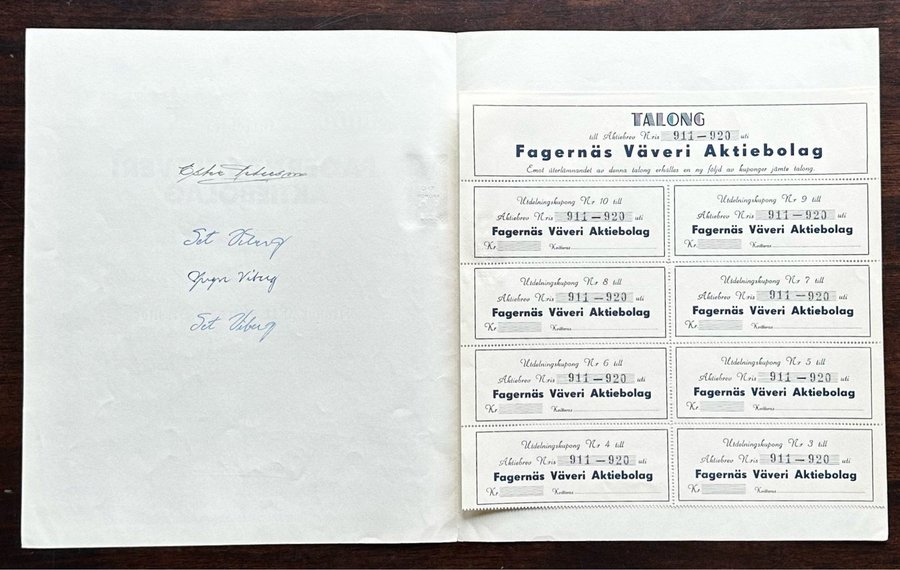 Set Viberg
Yngve Viberg
Set Viberg
TALONG
till Aktiebrev N:ris 911—920 uti
Fagernäs Väveri Aktiebolag
Emot återlämnandet av denna talong erhålles en ny följd av kuponger jämte talong.
Utdelningskupong Nr 10 till
Aktiebrev N:ris 911—920 uti
Fagernäs Väveri Aktiebolag
Kr Kvitteras
Utdelningskupong Nr 9 till
Aktiebrev N:ris 911—920 uti
Fagernäs Väveri Aktiebolag
Kr Kvitteras
Utdelningskupong Nr 8 till
Aktiebrev N:ris 911—920 uti
Fagernäs Väveri Aktiebolag
Kr Kvitteras
Utdelningskupong Nr 7 till
Aktiebrev N:ris 911—920 uti
Fagernäs Väveri Aktiebolag
Kr Kvitteras
Utdelningskupong Nr 6 till
Aktiebrev N:ris 911—920 uti
Fagernäs Väveri Aktiebolag
Kr Kvitteras
Utdelningskupong Nr 5 till
Aktiebrev N:ris 911—920 uti
Fagernäs Väveri Aktiebolag
Kr Kvitteras
Utdelningskupong Nr 4 till
Aktiebrev N:ris 911—920 uti
Fagernäs Väveri Aktiebolag
Kr Kvitteras
Utdelningskupong Nr 3 till
Aktiebrev N:ris 911—920 uti
Fagernäs Väveri Aktiebolag
Kr Kvitteras